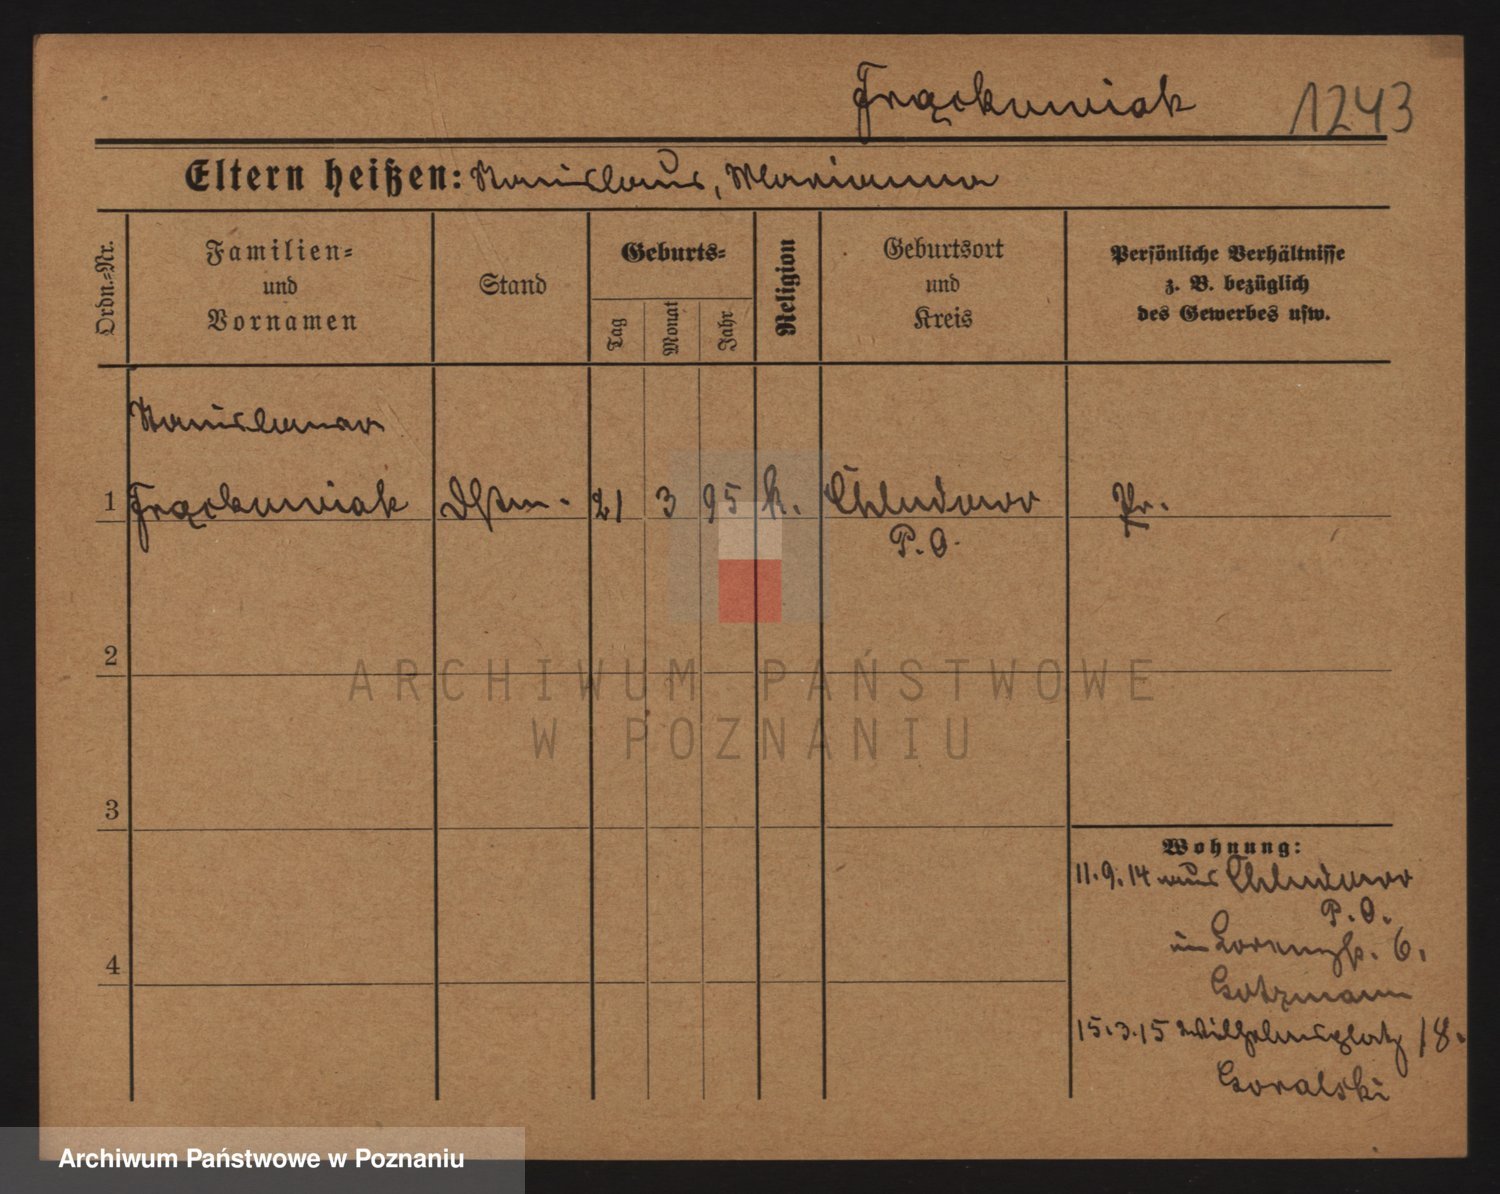 Frąckowiak 1243
Eltern heißen: Stanislaus, Marianna
Ordn.-Nr.
Familien-
und
Vornamen
Stand
Geburts-
Tag
Monat
Jahr
Religion
Geburtsort
und
Kreis
Persönliche Verhältnisse
z. B. bezüglich
des Gewerbes usw.
1 Frąckowiak 21 3 95 k. Chludowo Pr.
P. O.
2
3
4
Wohnung:
11.9.14 aus Chludowo
P. O.
in 6.
Gotzmann
15.3.15 Wilhelmsplatz 18.
Goralski
ARCHIWUM PAŃSTWOWE
W POZNANIU
Archiwum Państwowe w Poznaniu